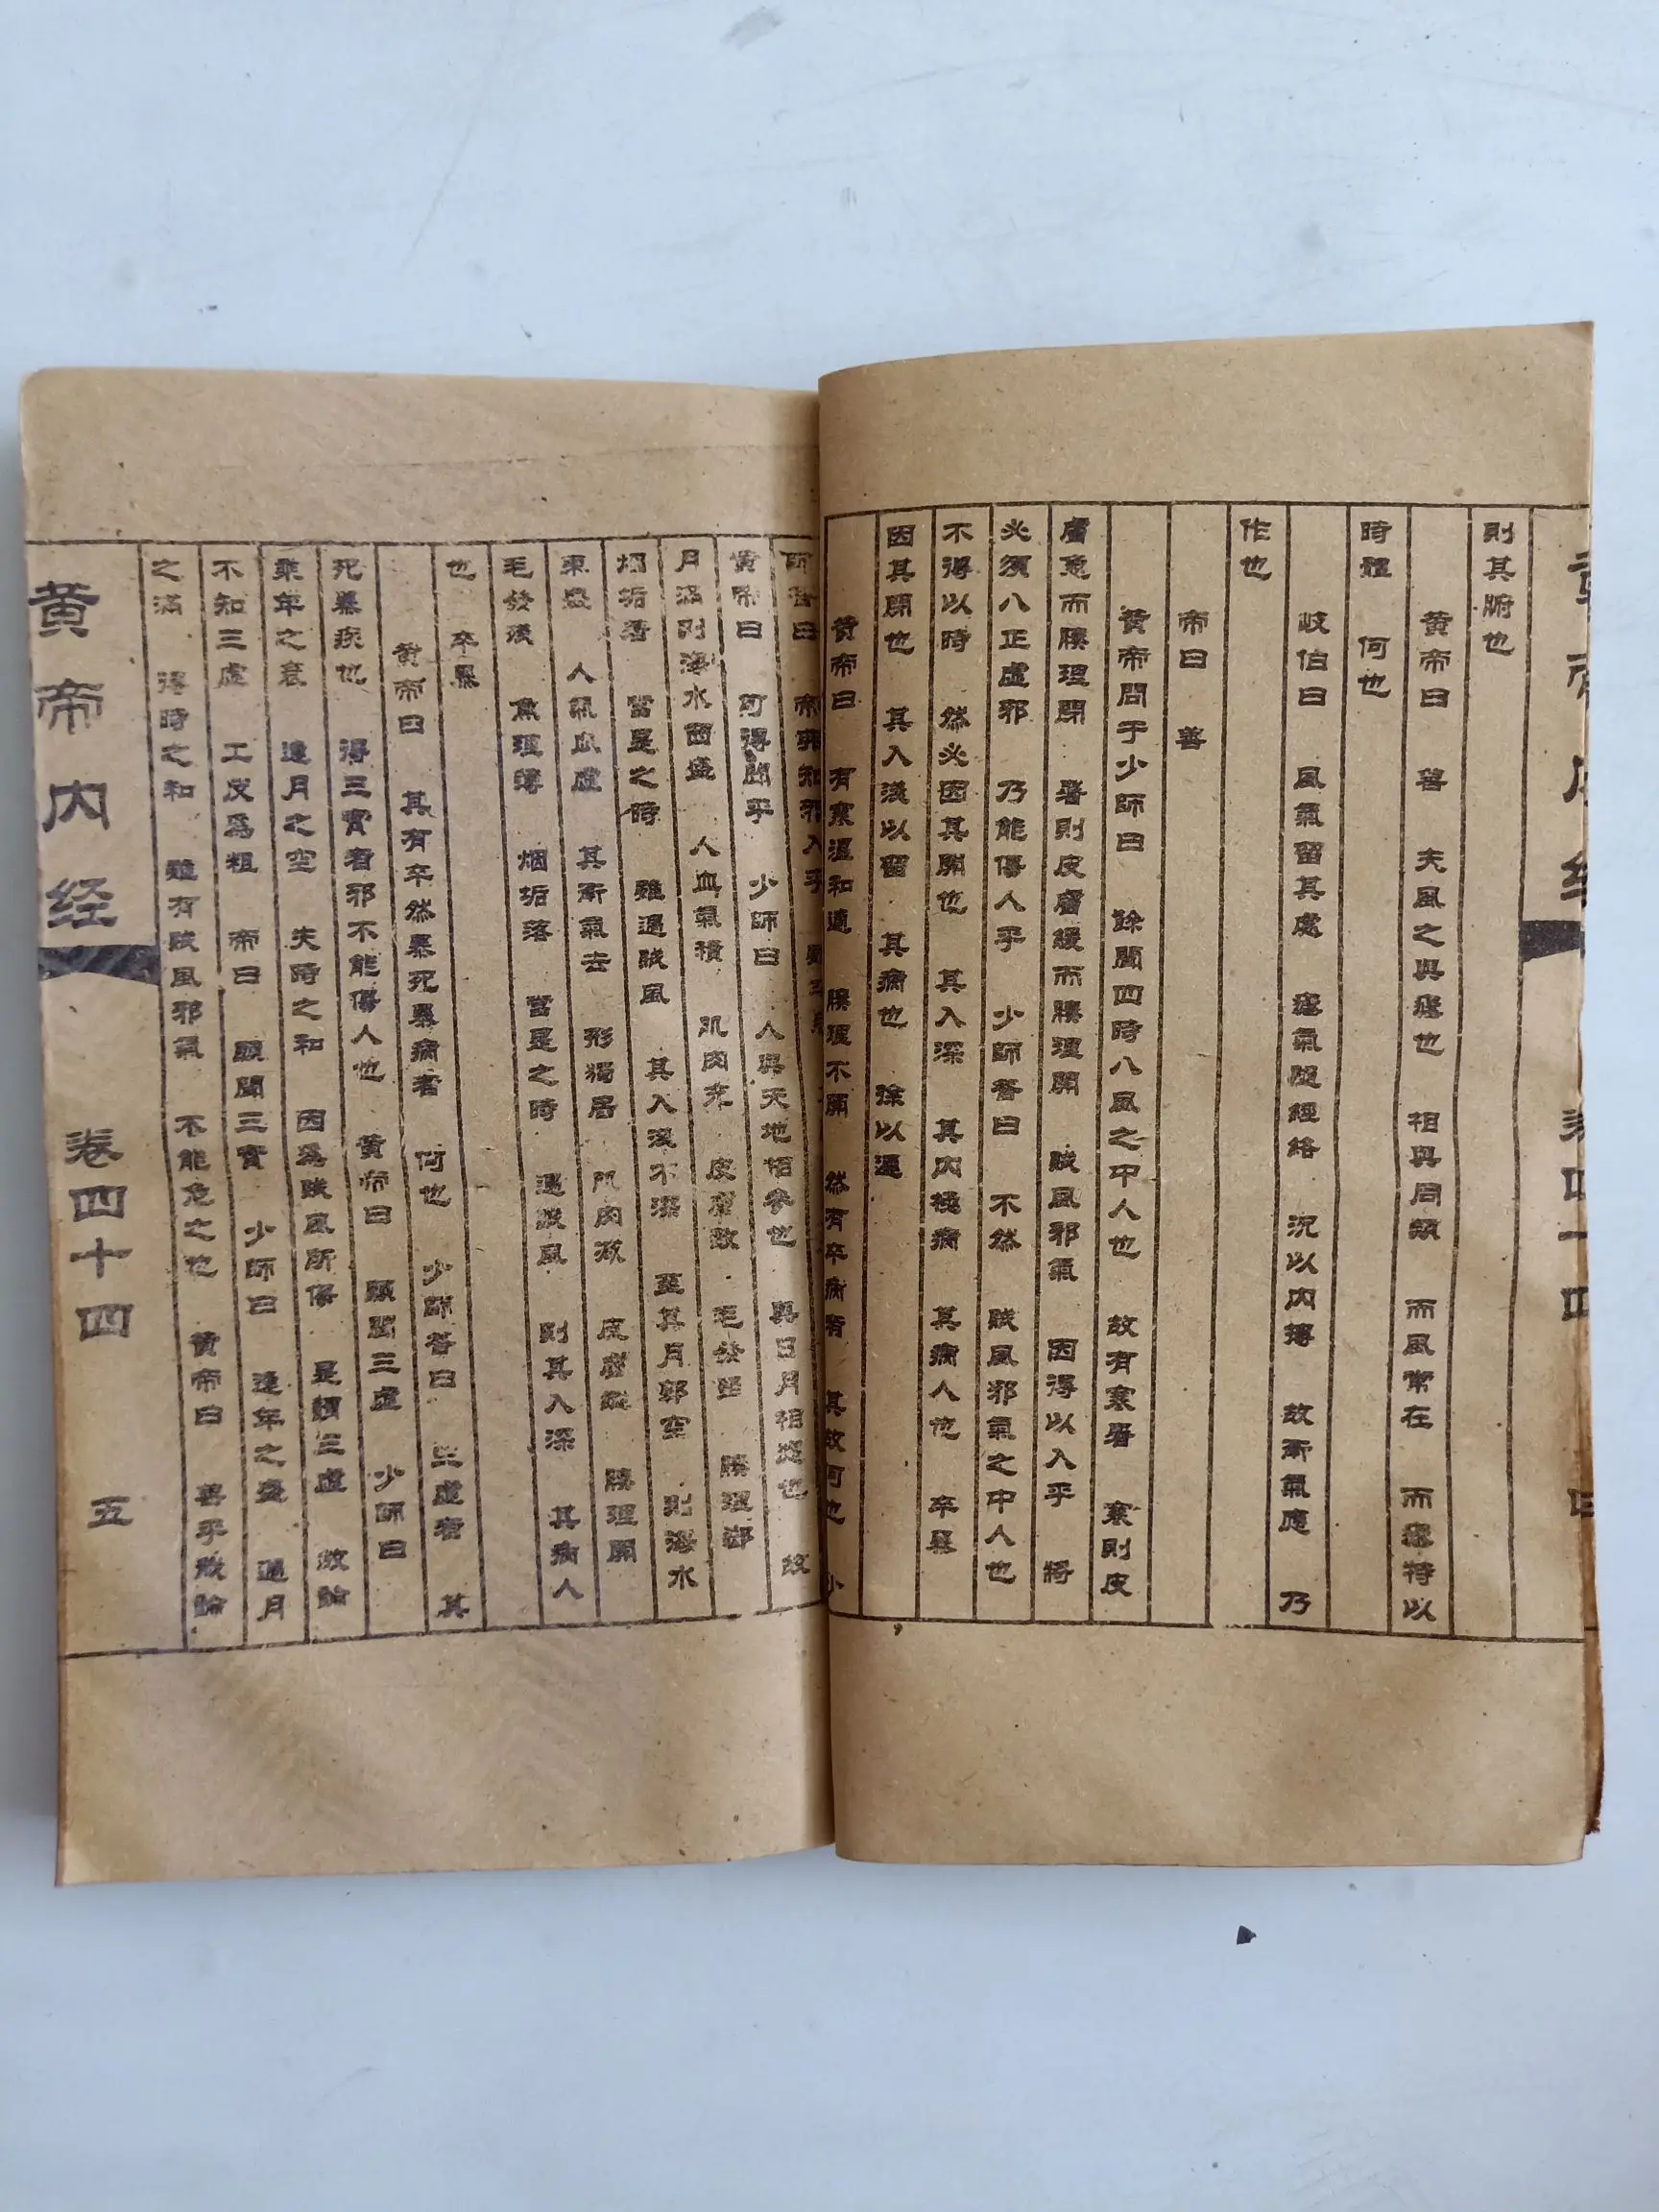 則其腑也
黄帝曰 善 夫風之與瘧也 相與同類 而風常在 而瘧特以
時體 何也
岐伯曰 風氣留其處 瘧氣隨經絡 沉以内摶 故衛氣應 乃
作也
帝曰 善
黄帝問于少師曰 餘聞四時八風之中人也 故有寒暑 寒則皮
膚急而腠理閉 暑則皮膚緩而腠理開 賊風邪氣 因得以入乎 將
必須八正虛邪 乃能傷人乎 少師答曰 不然 賊風邪氣之中人也
不得以時 然必因其開也 其入深 其内極病 其病人也 卒暴
因其閉也 其入淺以留 其病也 徐以遲
黄帝曰 有寒温和適 腠理不開 然有卒病者 其故何也 少
師答曰 帝弗知邪入乎
黄帝曰 可得聞乎 少師曰 人與天地相參也 與日月相應也 故
月滿則海水西盛 人血氣積 肌肉充 皮膚致 毛發堅 腠理郄
烟垢著 當是之時 雖遇賊風 其入淺不深 至其月郭空 則海水
東盛 人氣血虛 其衛氣去 形獨居 肌肉减 皮膚縱 腠理開
毛發淺 焦理薄 烟垢落 當是之時 遇賊風 則其入深 其病人
也 卒暴
黄帝曰 其有卒然暴死暴病者 何也 少師答曰 三虛者 其
死暴疾也 得三實者邪不能傷人也 黄帝曰 願聞三虛 少師曰
乘年之衰 逢月之空 失時之和 因爲賊風所傷 是謂三虛 故論
不知三虛 工反爲粗 帝曰 願聞三實 少師曰 逢年之盛 遇月
之滿 得時之和 雖有賊風邪氣 不能危之也 黄帝曰 善乎哉論
黄帝内经 卷四十四 五